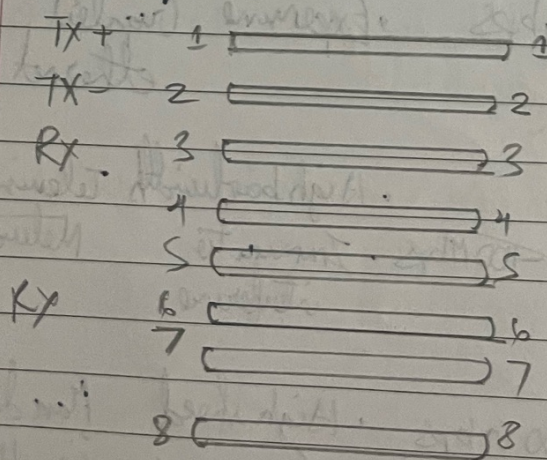 TX + 1 1
TX - 2 2
RX 3 3
4 4
5 5
RX 6 6
7 7
8 8